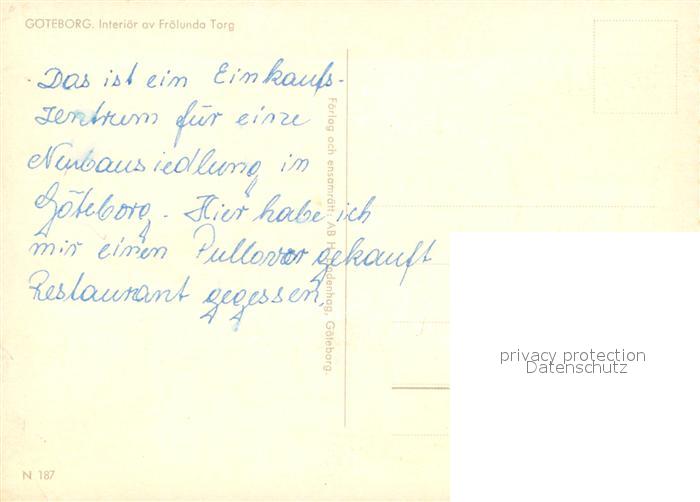 GÖTEBORG. Interiör av Frölunda Torg
Das ist ein Einkaufs-
zentrum für eine
Neubausiedlung in
Göteborg. Hier habe ich
mir einen Pullover gekauft
Restaurant gegessen.
Förlag och ensamrätt: AB H. Lindenhag, Göteborg.
privacy protection
Datenschutz
N 187